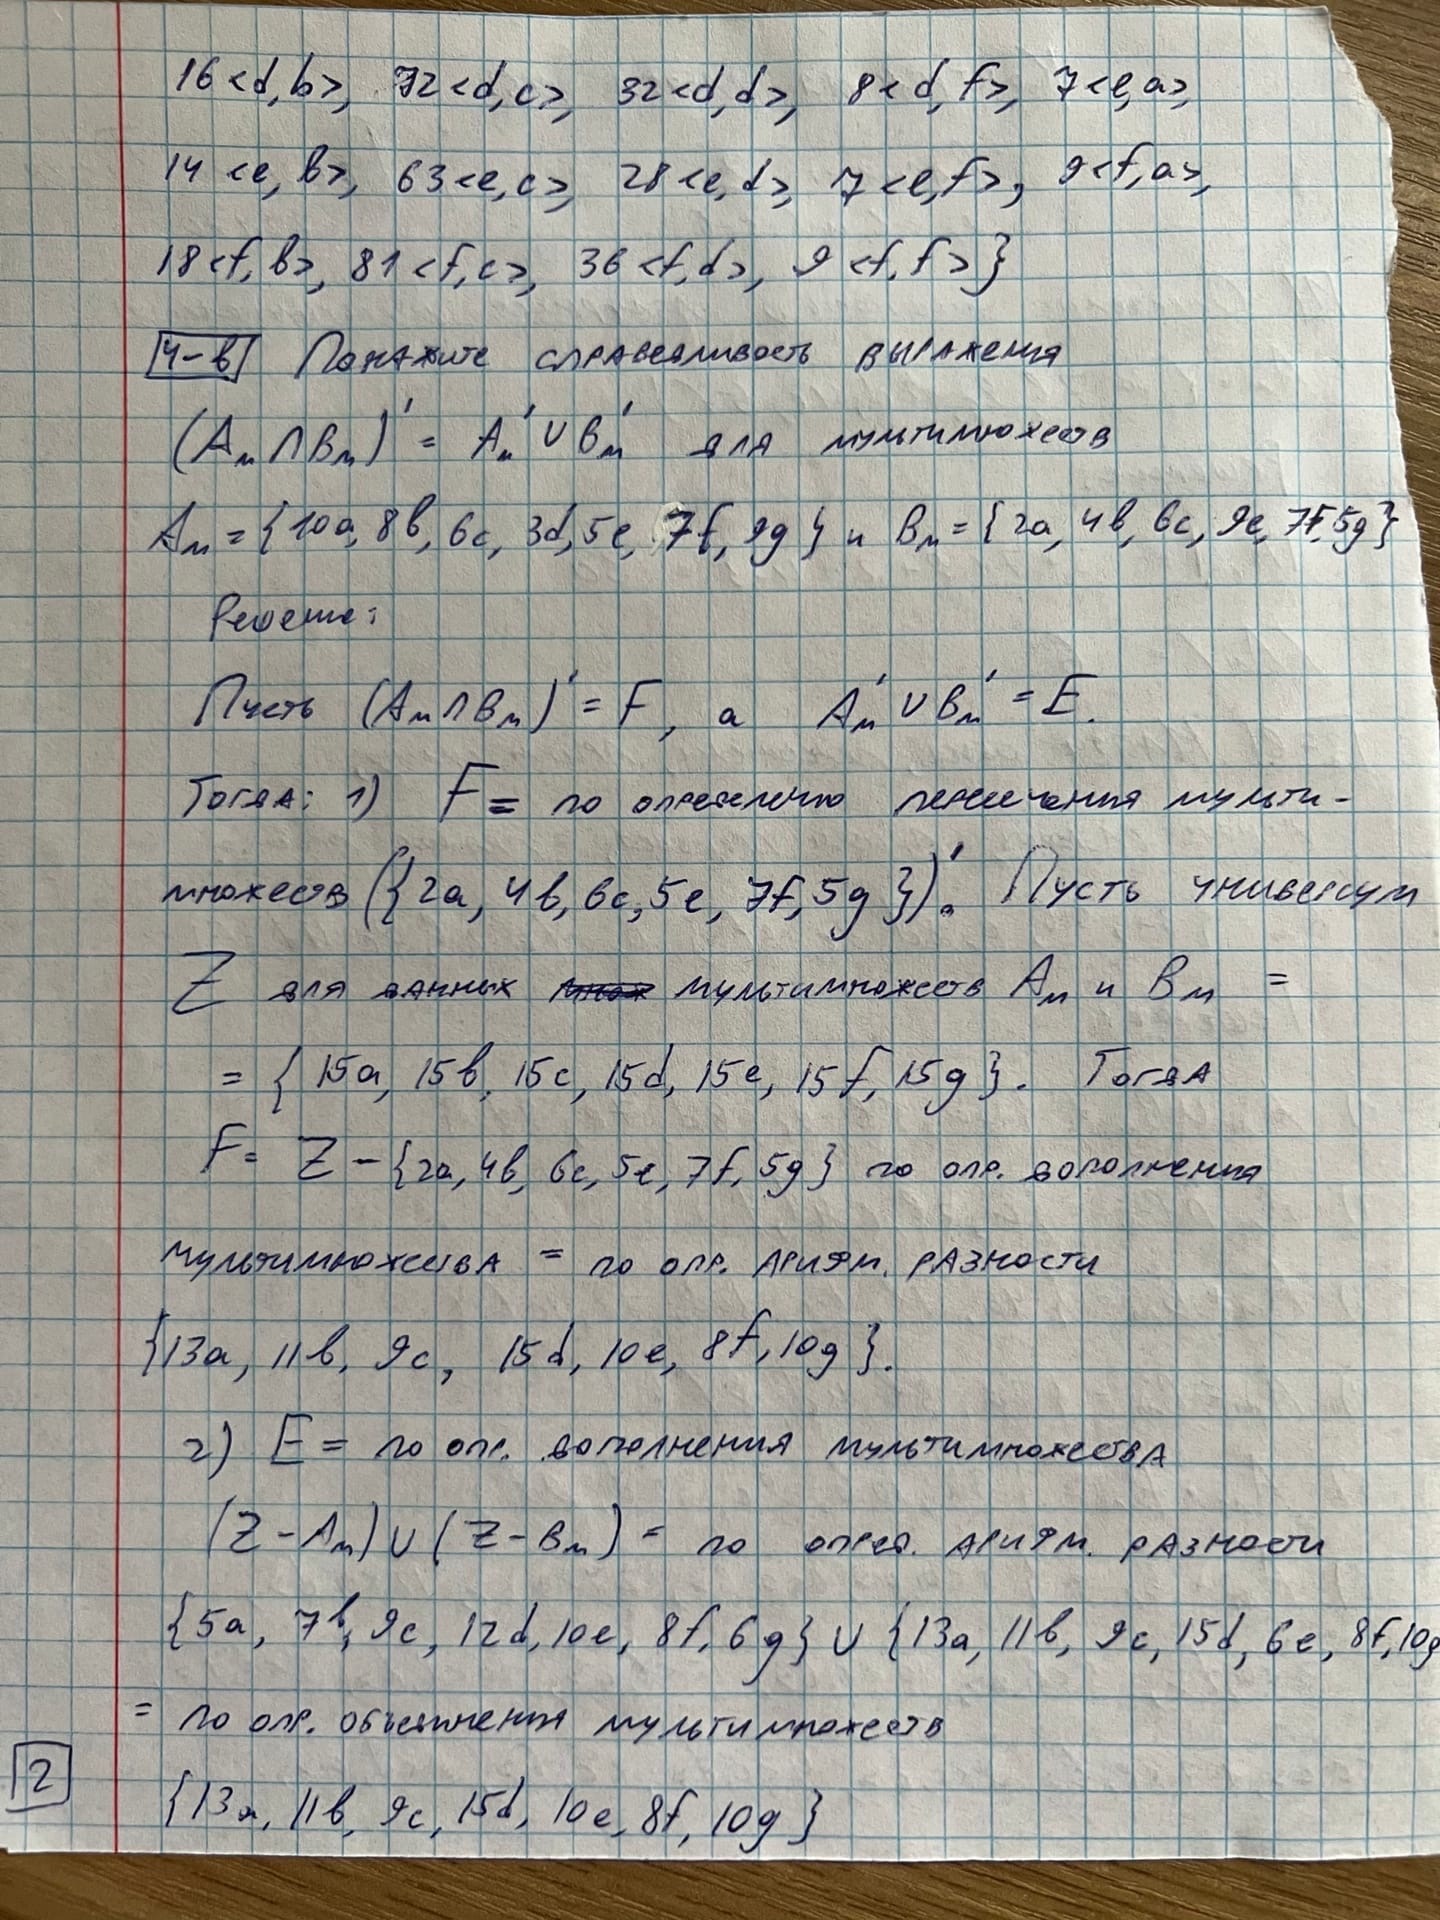 16<d,b>, 72<d,c>, 32<d,d>, 8<d,f>, 7<e,a>,
14<e,b>, 63<e,c>, 28<e,d>, 7<e,f>, 9<f,a>,
18<f,b>, 81<f,c>, 36<f,d>, 9<f,f>}
4-в Покажите справедливость выражения
(Aм∩Bм)' = Aм'∪Bм' для мультимножеств
Aм={10a, 8b, 6c, 3d, 5e, 7f, 9g} и Bм={2a, 4b, 6c, 9e, 7f, 5g}
Решение:
Пусть (Aм∩Bм)'=F, а Aм'∪Bм'=E.
Тогда: 1) F= по определению пересечения мульти-
множеств ({2a, 4b, 6c, 5e, 7f, 5g})'. Пусть универсум
Z для данных мультимножеств Aм и Bм =
= {15a, 15b, 15c, 15d, 15e, 15f, 15g}. Тогда
F= Z-{2a, 4b, 6c, 5e, 7f, 5g} по опр. дополнения
мультимножества = по опр. арифм. разности
{13a, 11b, 9c, 15d, 10e, 8f, 10g}.
2) E= по опр. дополнения мультимножества
(Z-Aм)∪(Z-Bм)= по опред. арифм. разности
{5a, 7b, 9c, 12d, 10e, 8f, 6g}∪{13a, 11b, 9c, 15d, 6e, 8f, 10g
= по опр. объединения мультимножеств
{13a, 11b, 9c, 15d, 10e, 8f, 10g}
2